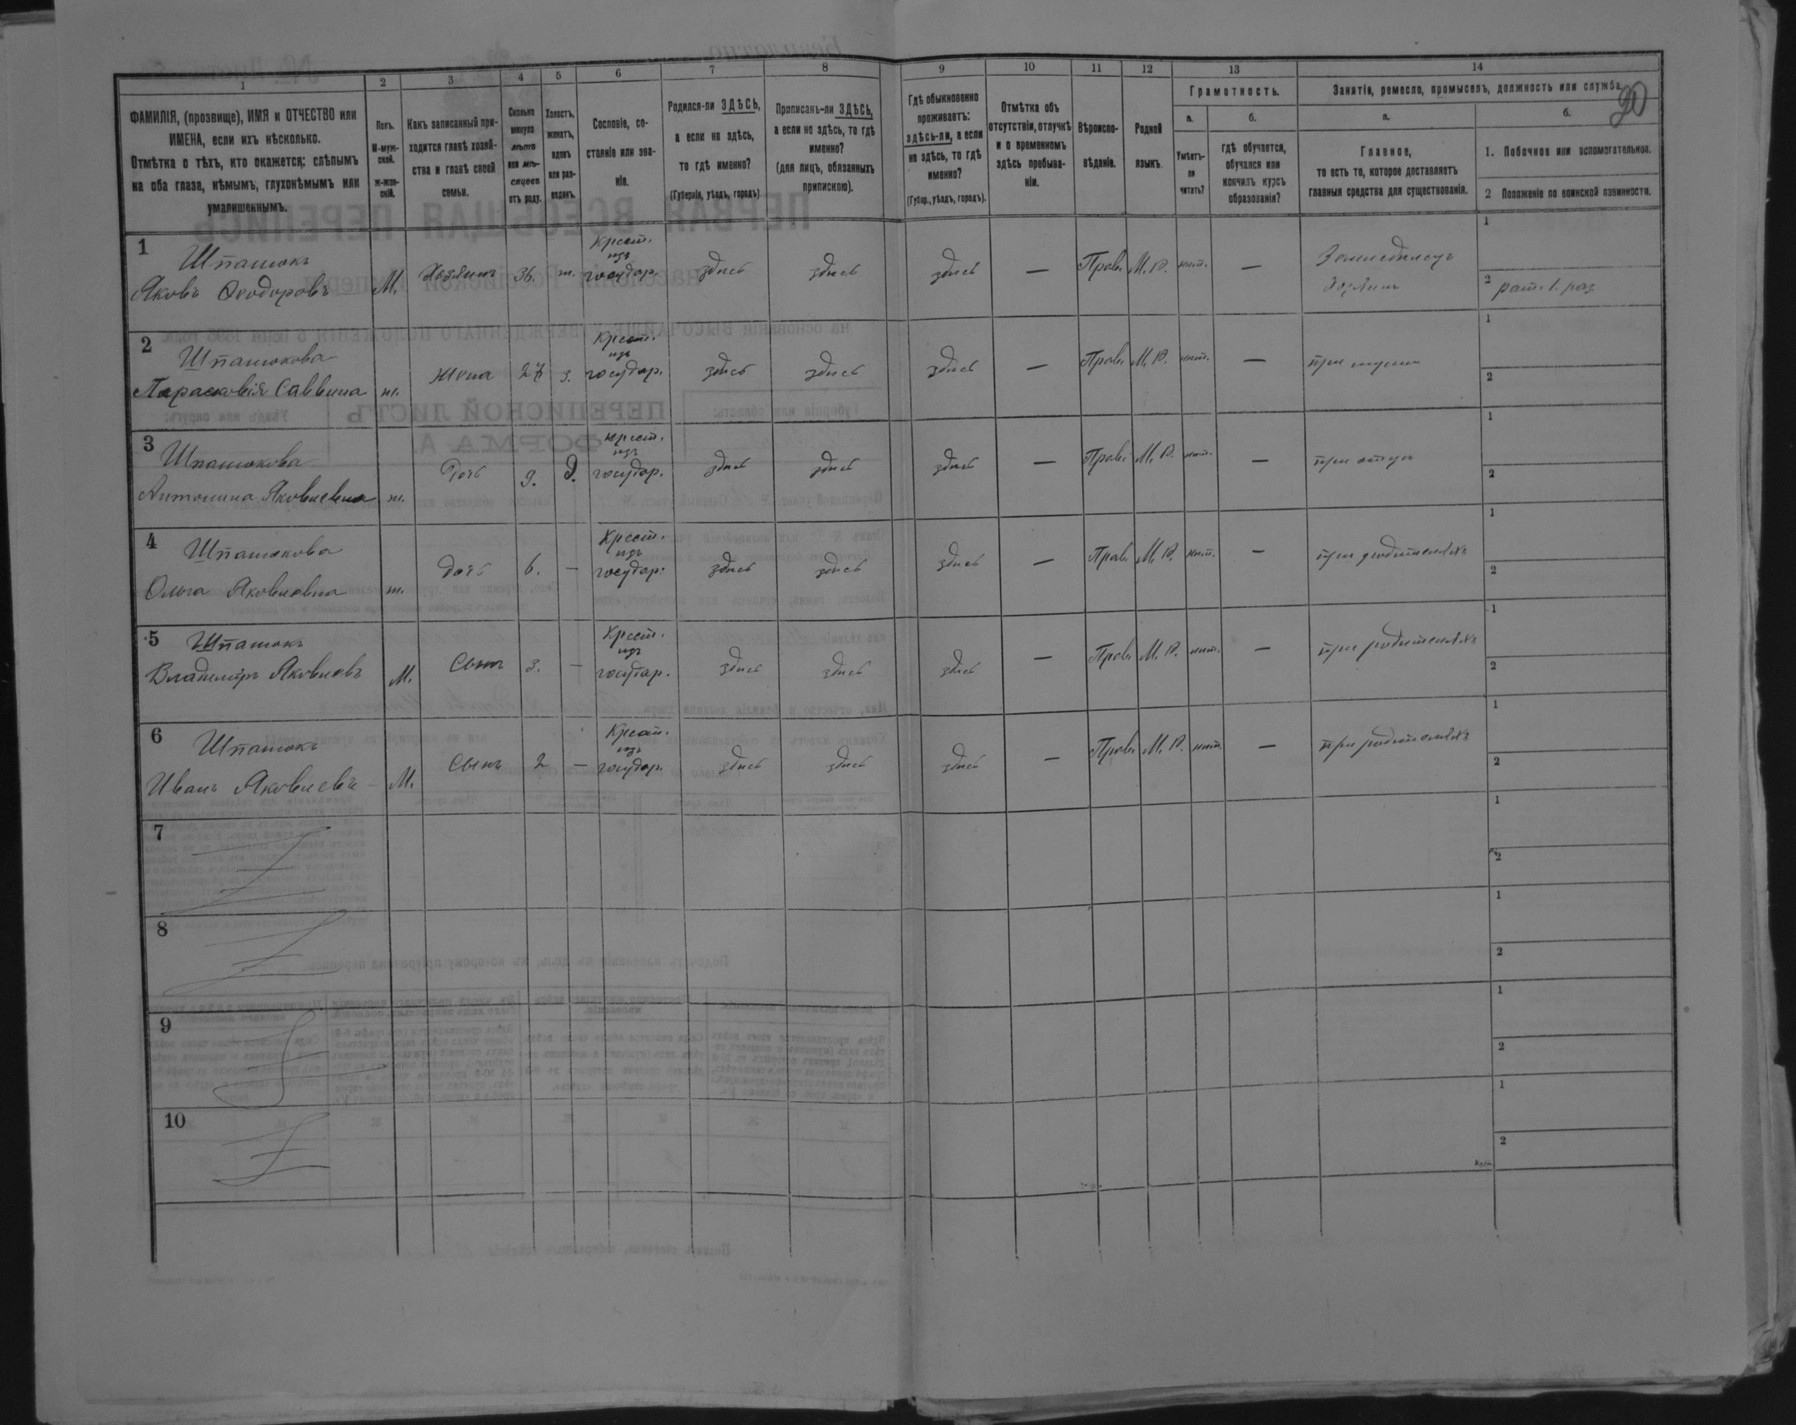 20
1 2 3 4 5 6 7 8 9 10 11 12 13 14
ФАМИЛІЯ, (прозвище), ИМЯ и ОТЧЕСТВО или
ИМЕНА, если ихъ нѣсколько.
Отмѣтка о тѣхъ, кто окажется: слѣпымъ
на оба глаза, нѣмымъ, глухонѣмымъ или
умалишеннымъ.
Полъ.
М-муж-
ской.
Ж-жен-
скій.
Какъ записанный при-
ходится главѣ хозяй-
ства и главѣ своей
семьи.
Сколько
минуло
лѣтъ
или мѣ-
сяцевъ
отъ роду.
Холостъ,
женатъ,
вдовъ
или раз-
веденъ.
Сословіе, со-
стояніе или зва-
ніе.
Родился-ли ЗДѢСЬ,
а если не здѣсь,
то гдѣ именно?
(Губернія, уѣздъ, городъ)
Приписанъ-ли ЗДѢСЬ,
а если не здѣсь, то гдѣ
именно?
(для лицъ, обязанныхъ
припискою).
Гдѣ обыкновенно
проживаетъ:
здѣсь-ли, а если
не здѣсь, то гдѣ
именно?
(Губер., уѣздъ, городъ).
Отмѣтка объ
отсутствіи, отлучкѣ
и о временномъ
здѣсь пребыва-
ніи.
Вѣроиспо-
вѣданіе.
Родной
языкъ.
Грамотность.
а.
Умѣетъ-
ли
читать?
б.
гдѣ обучается,
обучался или
кончилъ курсъ
образованія?
Занятіе, ремесло, промыселъ, должность или служба.
а.
Главное,
то есть то, которое доставляетъ
главныя средства для существованія.
б.
1. Побочное или вспомогательное.
2 Положеніе по воинской повинности.
1
Шпатюкъ
Яковъ Ѳеодоровъ М. Хозяинъ 36. ж. Крест. изъ государ. здѣсь здѣсь здѣсь — Правъ М. Р. нѣт. — Земледѣлецъ
Хозяинъ
1
2 рат. 1. раз.
2
Шпатюкова
Парасковія Саввина ж. жена 27 з. Крест. изъ государ. здѣсь здѣсь здѣсь — Правъ М. Р. нѣт. — при мужѣ
1
2
3
Шпатюкова
Антонина Яковлевна ж. Дочь 9. Крест. изъ государ. здѣсь здѣсь здѣсь — Правъ М. Р. нѣт. — при отцѣ
1
2
4
Шпатюкова
Ольга Яковлевна ж. дочь 6. — Крест. изъ государ. здѣсь здѣсь здѣсь — Правъ М. Р. нѣт. — при родителяхъ
1
2
5
Шпатюкъ
Владиміръ Яковлевъ М. Сынъ 3. — Крест. изъ государ. здѣсь здѣсь здѣсь — Правъ М. Р. нѣт. — при родителяхъ
1
2
6
Шпатюкъ
Иванъ Яковлевъ М. Сынъ 2 — Крест. изъ государ. здѣсь здѣсь здѣсь — Правъ М. Р. нѣт. — при родителяхъ
1
2
7
1
2
8
1
2
9
1
2
10
1
2